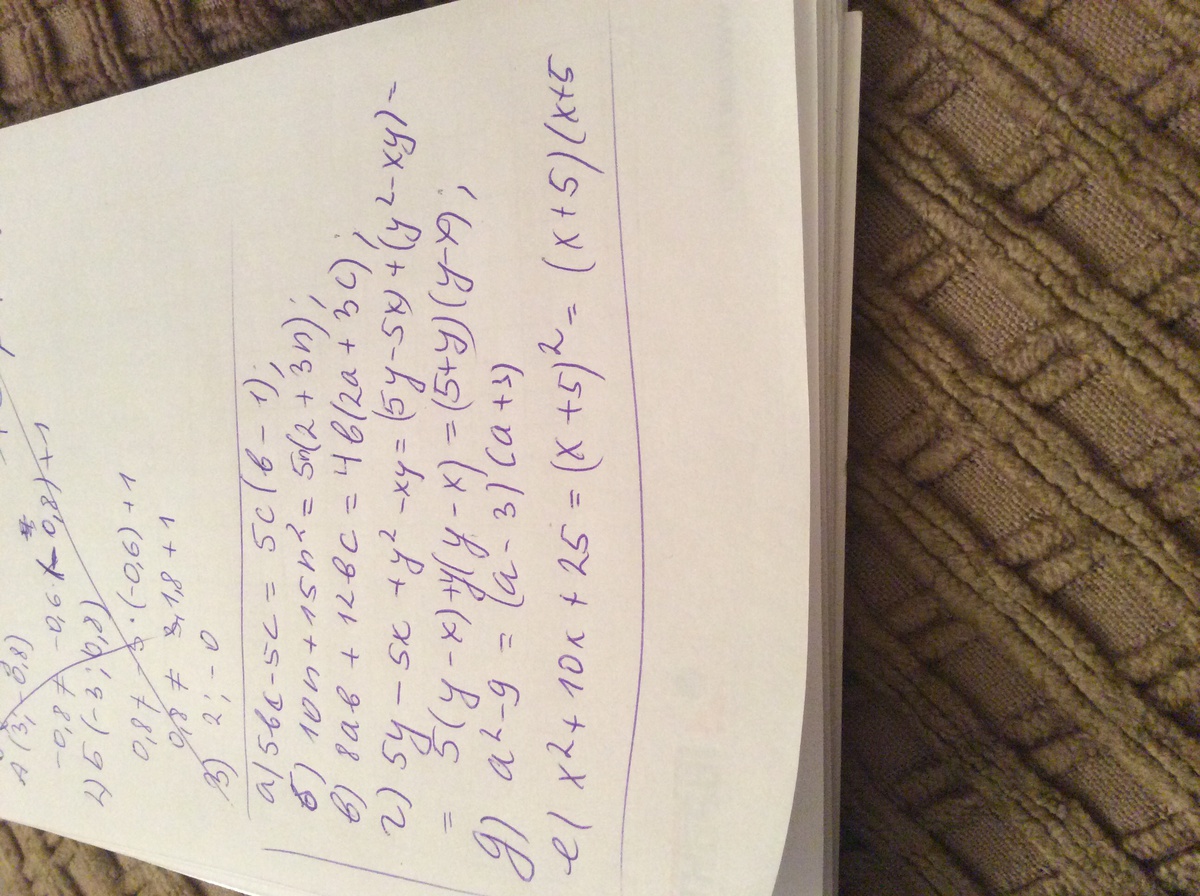 А(3; -0,8)
-0,8 ≠ -0,6 · (-0,8) + 1
2) Б(-3; 0,8)
0,8 ≠ 3 · (-0,6) + 1
0,8 ≠ 1,8 + 1
3) 2; -0
а) 5вс - 5с = 5с(в - 1);
б) 10n + 15n² = 5n(2 + 3n);
в) 8ав + 12вс = 4в(2а + 3с);
г) 5y - 5x + y² - xy = (5y - 5x) + (y² - xy) =
= 5(y - x) + y(y - x) = (5+y)(y-x);
д) a² - 9 = (a - 3)(a + 3)
е) x² + 10x + 25 = (x + 5)² = (x + 5)(x+5